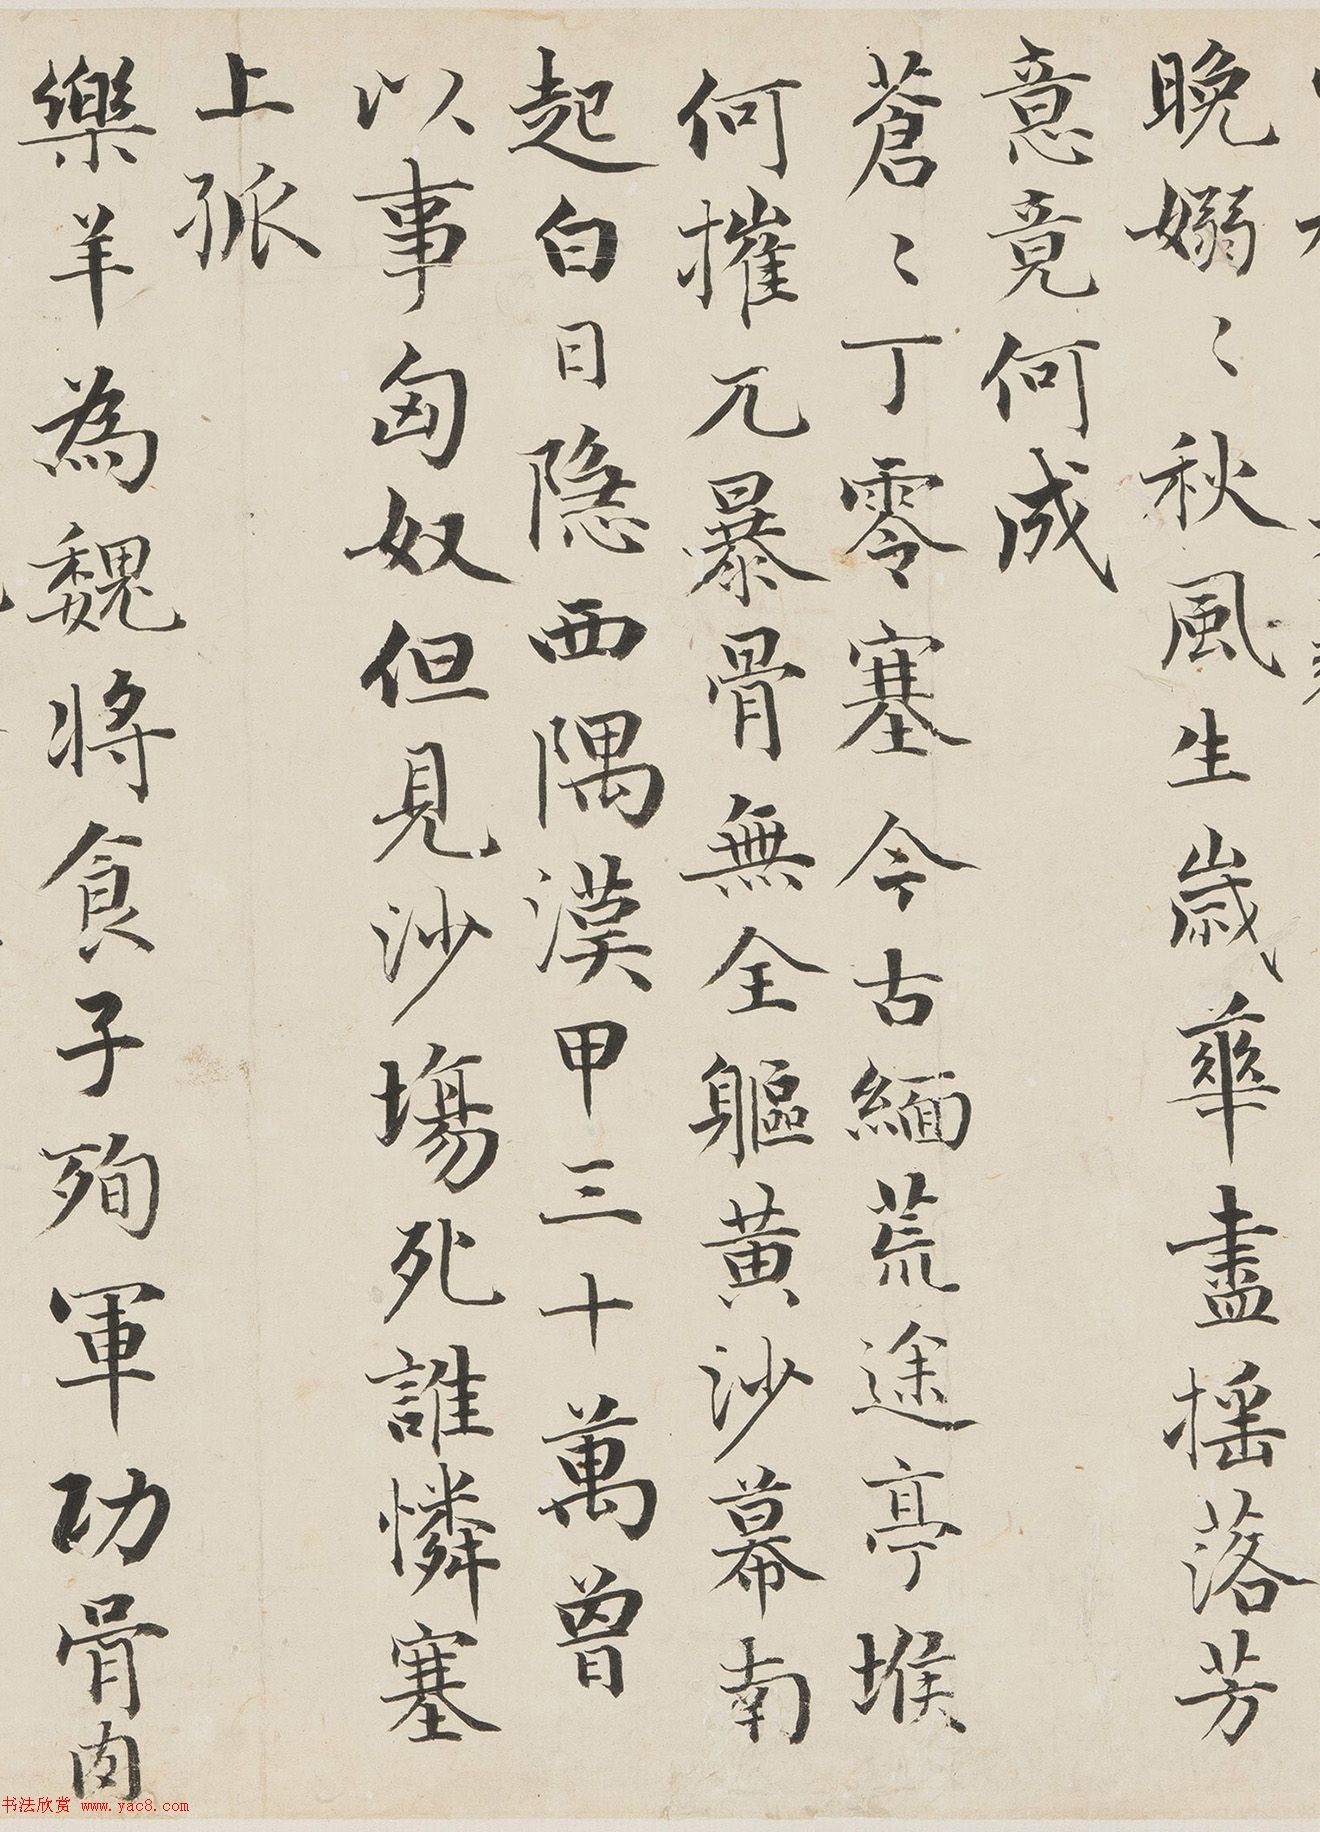 晚嫋〻秋風生歲華盡搖落芳
意竟何成
蒼〻丁零塞今古緬荒途亭堠
何摧兀暴骨無全軀黃沙幕南
起白日隱西隅漢甲三十萬曾
以事匈奴但見沙塲死誰憐塞
上孤
樂羊為魏將食子殉軍功骨肉
书法欣赏 www.yac8.com